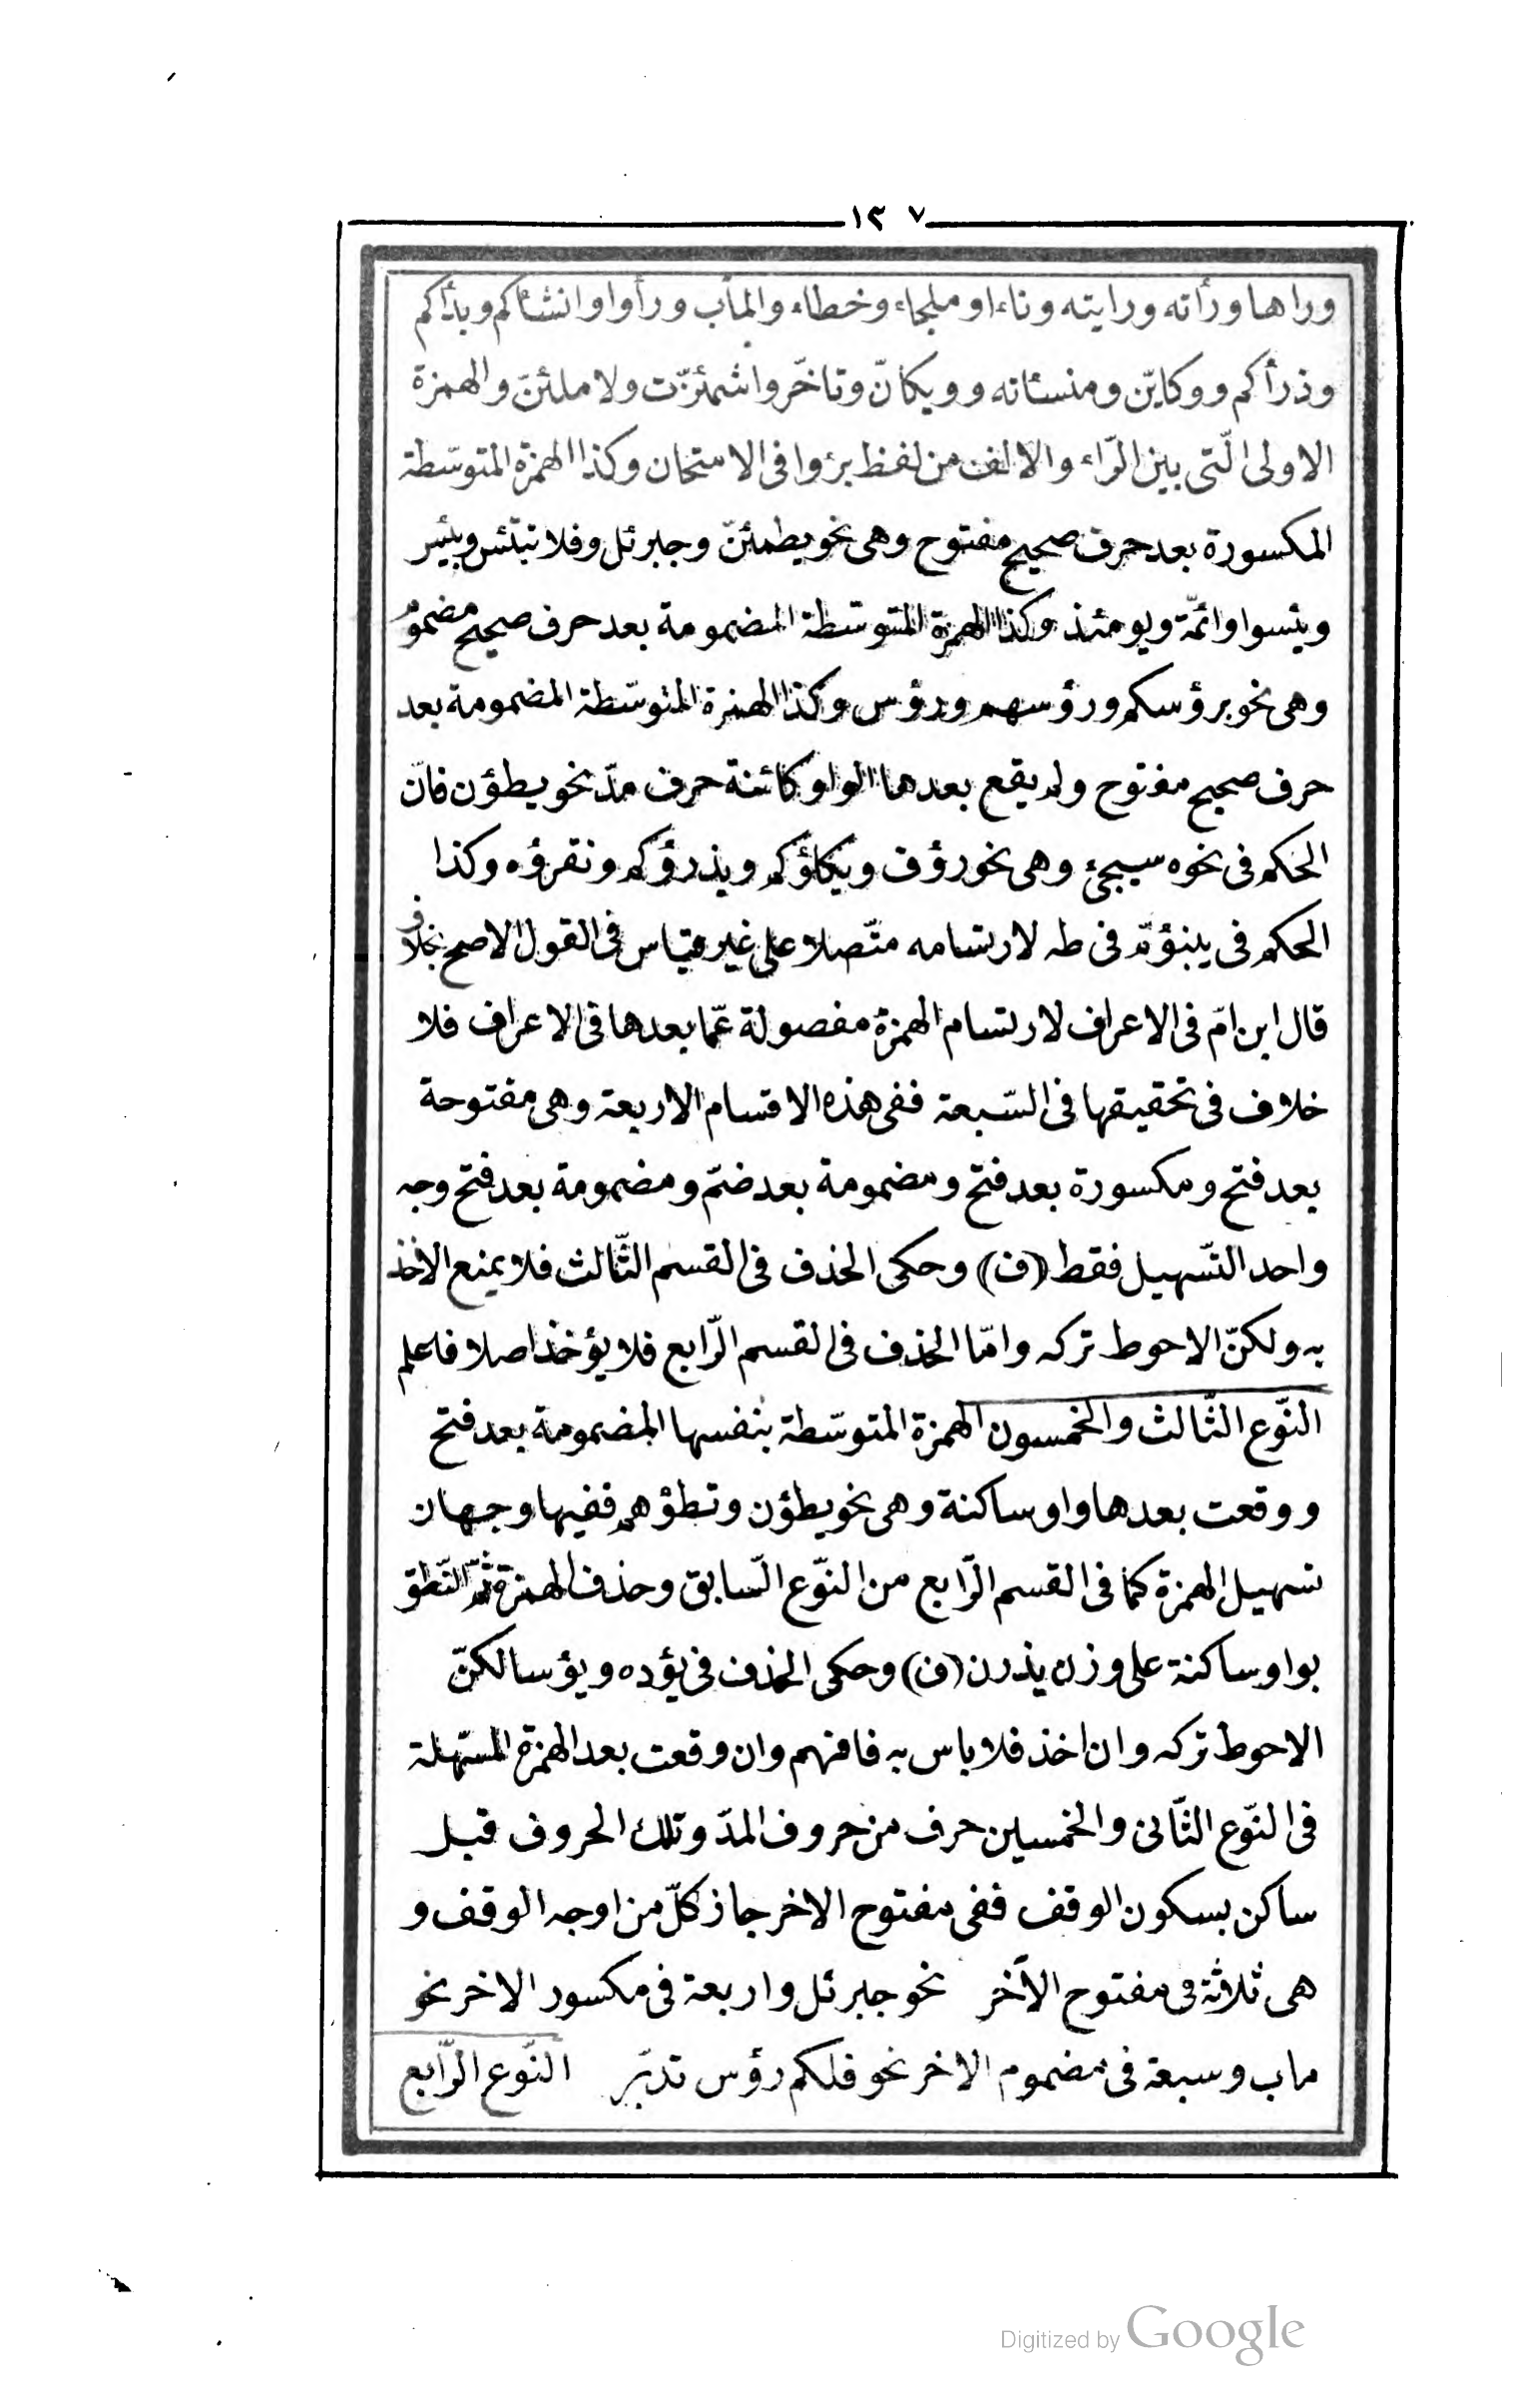 ١٣٧
وراها ورأته ورايته وناءا وملجاء وخطاء والمأب ورأوا وانشأكم وبدأكم
وذرأكم ووكايّن ومنسئاته وويكانّ وتاخّر واشمئزّت ولاملئنّ والهمزة
الاولى الّتى بين الرّاء والالف من لفظ برؤا فى الامتحان وكذا الهمزة المتوسّطة
المكسورة بعد حرف صحيح مفتوح وهى نحو يطمئنّ وجبرئل وفلا تبتئس وبئيس
ويئسوا وائمّة ويومئذ وكذا الهمزة المتوسّطة المضمومة بعد حرف صحيح مضموم
وهى نحو برؤسكم ورؤسهم ورؤس وكذا الهمزة المتوسّطة المضمومة بعد
حرف صحيح مفتوح ولم يقع بعدها الواو كائنة حرف مدّ نحو يطؤن فانّ
الحكم فى نحوه سيجئ وهى نحو رؤف ويكلؤكم ويذرؤكم ونقرؤه وكذا
الحكم فى يبنؤمّ فى طه لارتسامه متّصلا على غير قياس فى القول الاصح بخلاف
قال ابن امّ فى الاعراف لارتسام الهمزة مفصولة عمّا بعدها فى الاعراف فلا
خلاف فى تحقيقها فى السّبعة ففى هذه الاقسام الاربعة وهى مفتوحة
بعد فتح ومكسورة بعد فتح ومضمومة بعد ضمّ ومضمومة بعد فتح وجه
واحد التّسهيل فقط (ف) وحكى الحذف فى القسم الثّالث فلا يمنع الاخذ
به ولكنّ الاحوط تركه وامّا الحذف فى القسم الرّابع فلا يؤخذ اصلا فاعلم
النّوع الثّالث والخمسون الهمزة المتوسّطة بنفسها المضمومة بعد فتح
ووقعت بعدها واو ساكنة وهى نحو يطؤن وتطؤهم ففيها وجهان
تسهيل الهمزة كما فى القسم الرّابع من النّوع السّابق وحذف الهمزة ثمّ النّطق
بواو ساكنة على وزن يذرن (ف) وحكى الحذف فى يؤده ويؤسا لكنّ
الاحوط تركه وان اخذ فلا باس به فافهم وان وقعت بعد الهمزة المسهّلة
فى النّوع الثّانى والخمسين حرف من حروف المدّ وتلك الحروف قبل
ساكن بسكون الوقف ففى مفتوح الاخر جاز كلّ من اوجه الوقف و
هى ثلاثة فى مفتوح الآخر نحو جبرئل واربعة فى مكسور الاخر نحو
ماب وسبعة فى مضموم الاخر نحو فلكم رؤس تدبّر النّوع الرّابع
Digitized by Google